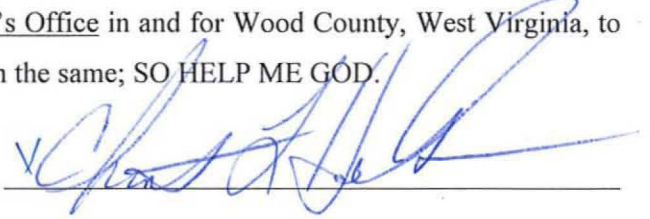 's Office in and for Wood County, West Virginia, to
n the same; SO HELP ME GOD.